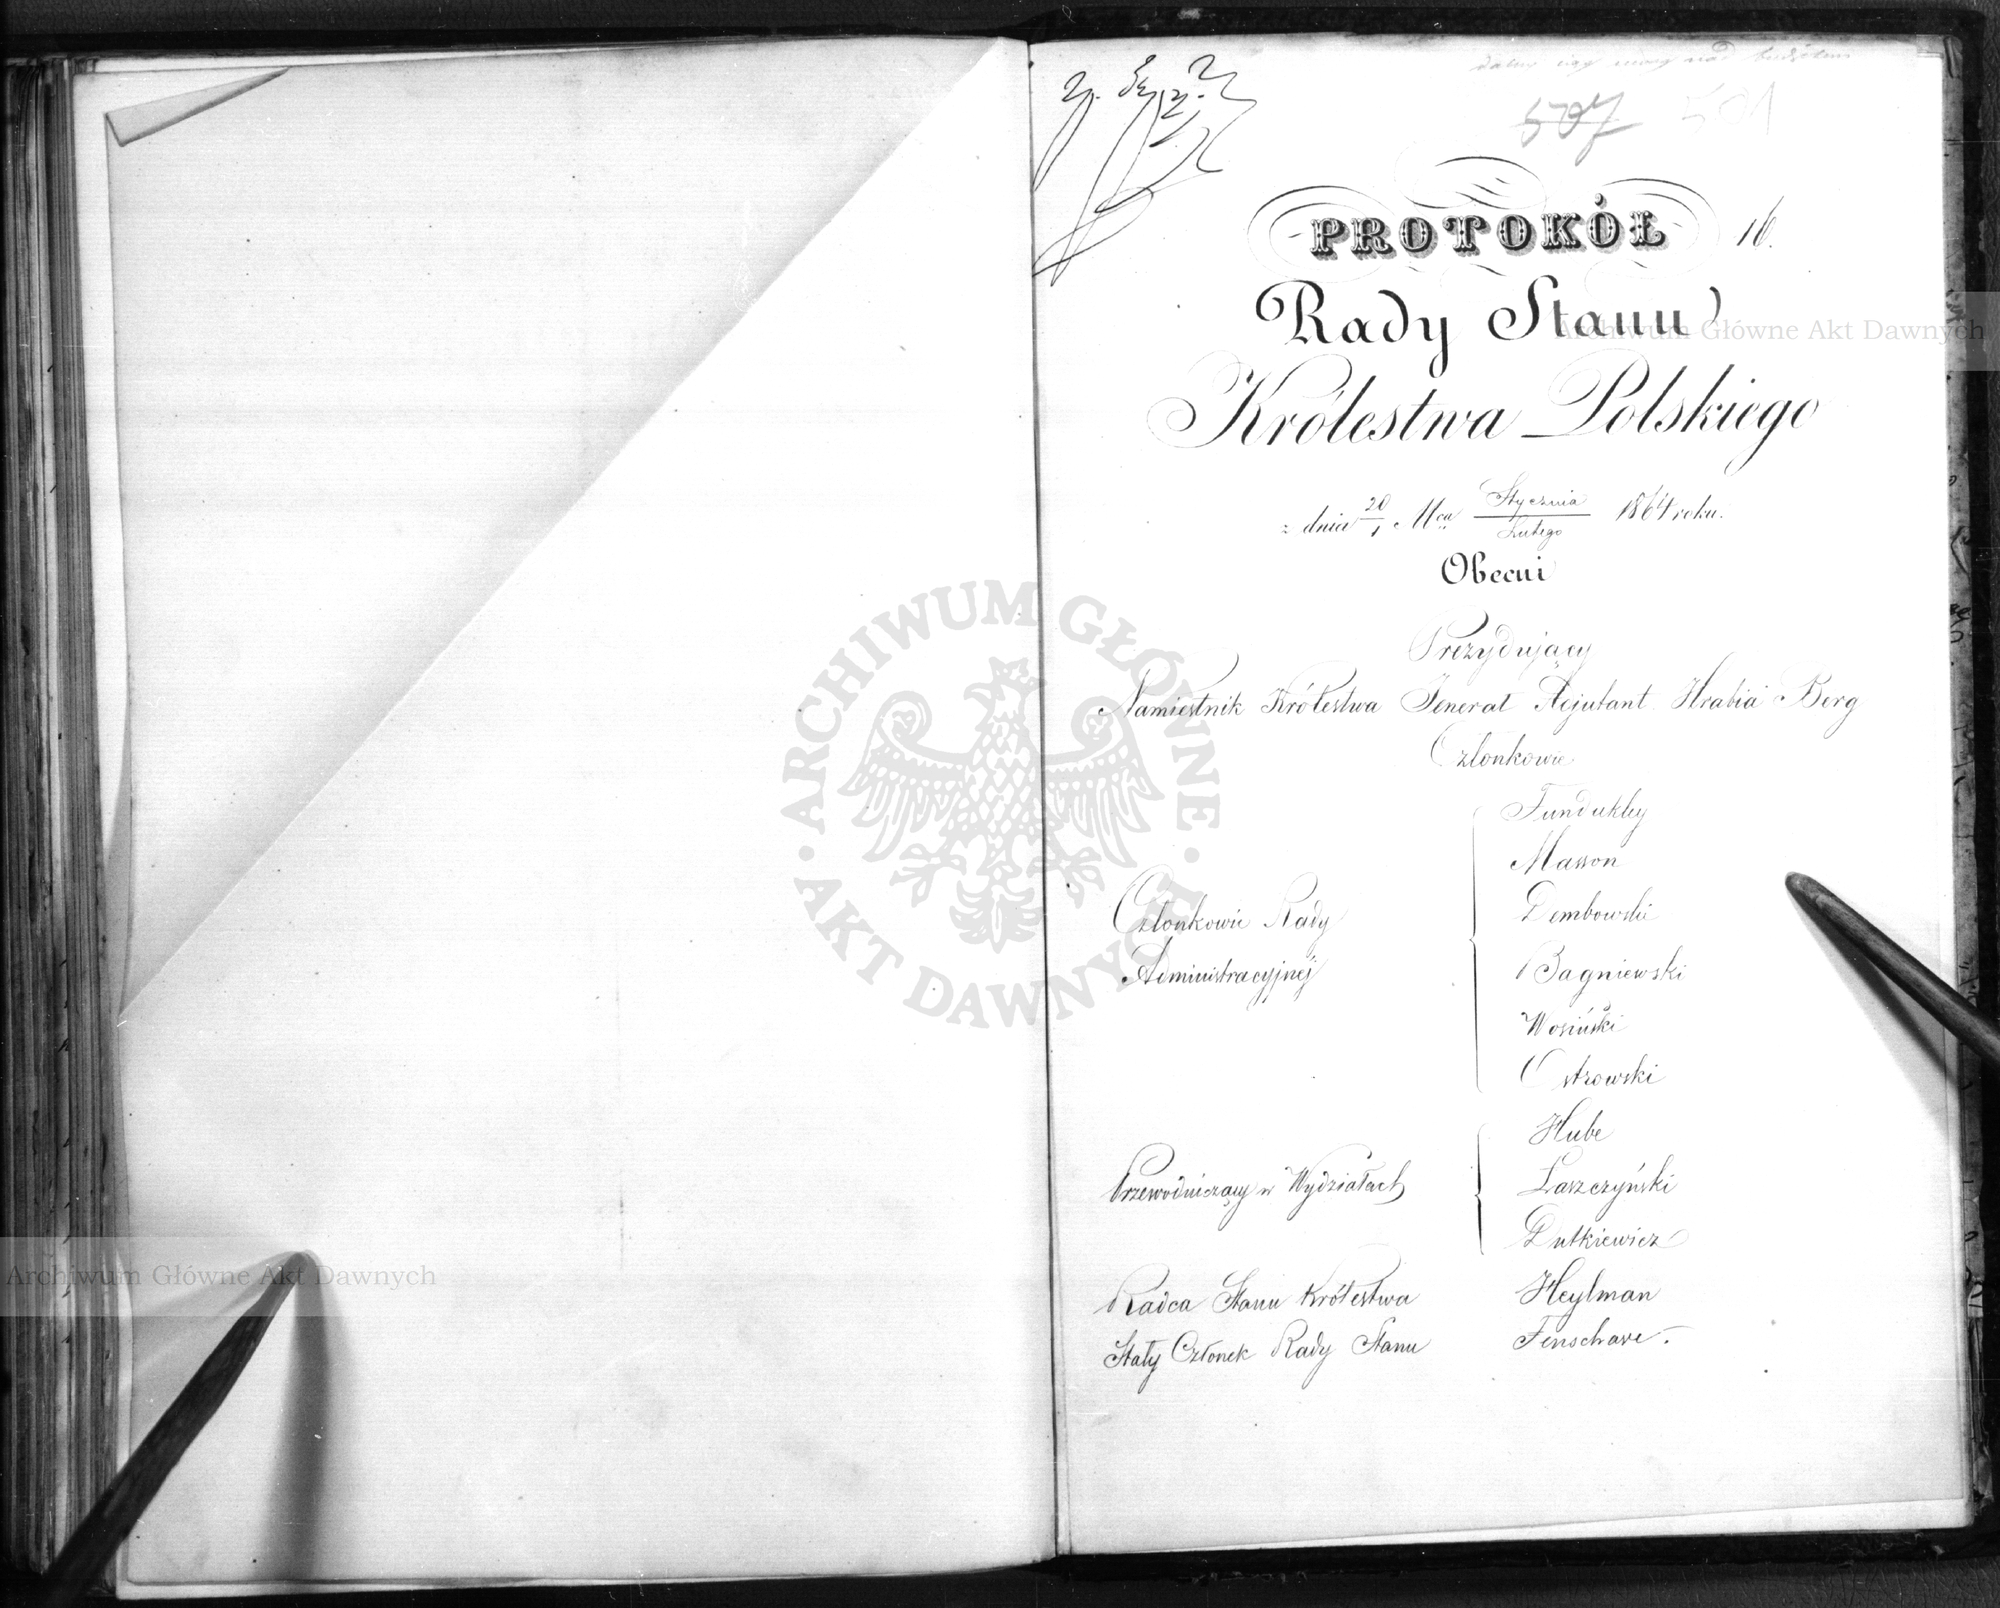 507 501
PROTOKÓŁ 16.
Rady Stanu
Królestwa Polskiego
z dnia 20/1 Mca Stycznia/Lutego 1864 roku.
Obecni
Prezydujący
Namiestnik Królestwa Jenerał Adjutant Hrabia Berg
Członkowie
Członkowie Rady Administracyjnéj
Fundukley
Masson
Dembowski
Bagniewski
Wosiński
Ostrowski
Przewodniczący w Wydziałach
Hube
Łaszczyński
Dutkiewicz
Radca Stanu Królestwa Heylman
Stały Członek Rady Stanu Fenschave.
Archiwum Główne Akt Dawnych
ARCHIWUM GŁÓWNE AKT DAWNYCH
Archiwum Główne Akt Dawnych